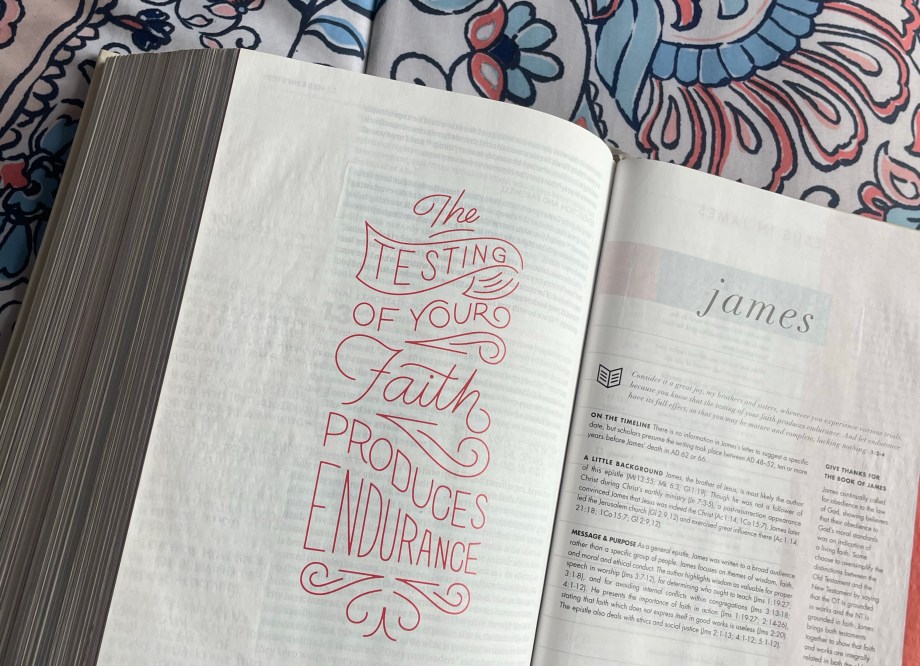 The
TESTING
OF YOUR
Faith
PRODUCES
ENDURANCE
james
Consider it a great joy, my brothers and sisters, whenever you experience various trials,
because you know that the testing of your faith produces endurance. And let endurance
have its full effect, so that you may be mature and complete, lacking nothing. 1:2-4
ON THE TIMELINE There is no information in James's letter to suggest a specific
date, but scholars presume the writing took place between AD 48–52, ten or more
years before James' death in AD 62 or 66.
A LITTLE BACKGROUND James, the brother of Jesus, is most likely the author
of this epistle (Mt 13:55; Mk 6:3; Gl 1:19). Though he was not a follower of
Christ during Christ's earthly ministry (Jn 7:3-5), a postresurrection appearance
convinced James that Jesus was indeed the Christ (Ac 1:14; 1Co 15:7). James later
led the Jerusalem church (Gl 2:9,12) and exercised great influence there (Ac 1:14;
21:18; 1Co 15:7; Gl 2:9,12).
MESSAGE & PURPOSE As a general epistle, James was written to a broad audience
rather than a specific group of people. James focuses on themes of wisdom, faith,
and moral and ethical conduct. The author highlights wisdom as valuable for proper
speech in worship (Jms 3:7-12), for determining who ought to teach (Jms 1:19-27;
3:1-8), and for avoiding internal conflicts within congregations (Jms 3:13-18;
4:1-12). He presents the importance of faith in action (Jms 1:19-27; 2:14-26),
stating that faith which does not express itself in good works is useless (Jms 2:20).
The epistle also deals with ethics and social justice (Jms 2:1-13; 4:1-12; 5:1-12).
GIVE THANKS FOR
THE BOOK OF JAMES
James continually called
for obedience to the law
of God, showing believers
that their obedience to
God's moral standards
was an indication of
a living faith. Some
choose to oversimplify the
distinctions between the
Old Testament and the
New Testament by saying
that the OT is grounded
in works and the NT is
grounded in faith. James
brings both testaments
together to show that faith
and works are integrally
related in both